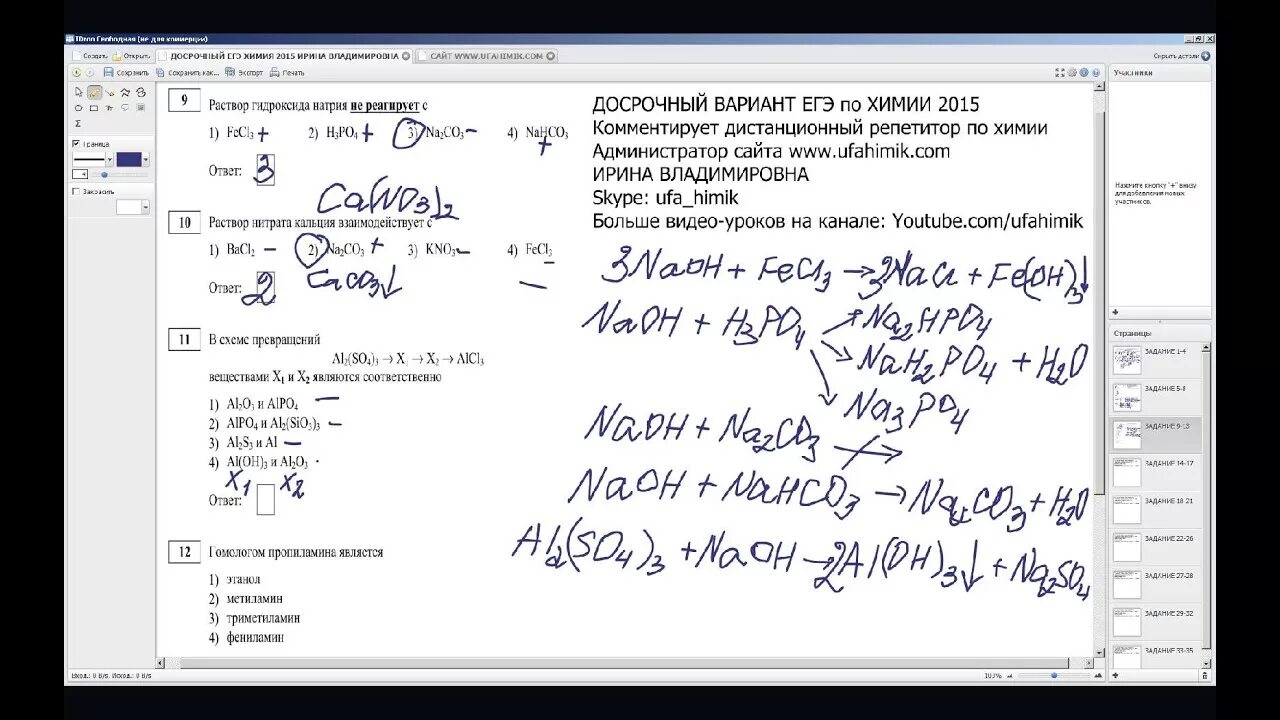 IDroo Свободная (не для коммерции)
Создать Открыть ДОСРОЧНЫЙ ЕГЭ ХИМИЯ 2015 ИРИНА ВЛАДИМИРОВНА САЙТ WWW.UFAHIMIK.COM Скрыть детали
Сохранить Сохранить как... Экспорт Печать Участники
Граница
Закрасить
9 Раствор гидроксида натрия не реагирует с
1) FeCl3 + 2) H3PO4 + 3) Na2CO3 – 4) NaHCO3 +
Ответ: 3
Ca(NO3)2
10 Раствор нитрата кальция взаимодействует с
1) BaCl2 – 2) Na2CO3 + 3) KNO3 – 4) FeCl2 –
Ответ: 2 CaCO3↓
11 В схеме превращений
Al2(SO4)3 → X1 → X2 → AlCl3
веществами X1 и X2 являются соответственно
1) Al2O3 и AlPO4 –
2) AlPO4 и Al2(SiO3)3 –
3) Al2S3 и Al –
4) Al(OH)3 и Al2O3
X1 X2
Ответ:
12 Гомологом пропиламина является
1) этанол
2) метиламин
3) триметиламин
4) фениламин
ДОСРОЧНЫЙ ВАРИАНТ ЕГЭ по ХИМИИ 2015
Комментирует дистанционный репетитор по химии
Администратор сайта www.ufahimik.com
ИРИНА ВЛАДИМИРОВНА
Skype: ufa_himik
Больше видео-уроков на канале: Youtube.com/ufahimik
3NaOH + FeCl3 → 3NaCl + Fe(OH)3↓
NaOH + H3PO4 → Na2HPO4
NaH2PO4 + H2O
Na3PO4
NaOH + Na2CO3
NaOH + NaHCO3 → Na2CO3 + H2O
Al2(SO4)3 + NaOH → 2Al(OH)3↓ + Na2SO4
Нажмите кнопку "+" внизу
для добавления новых
участников.
Страницы
ЗАДАНИЕ 1-4
ЗАДАНИЕ 5-8
ЗАДАНИЕ 9-13
ЗАДАНИЕ 14-17
ЗАДАНИЕ 18-21
ЗАДАНИЕ 22-26
ЗАДАНИЕ 27-28
ЗАДАНИЕ 29-32
ЗАДАНИЕ 33-35
Вход.: 0 B/s, Исход.: 0 B/s